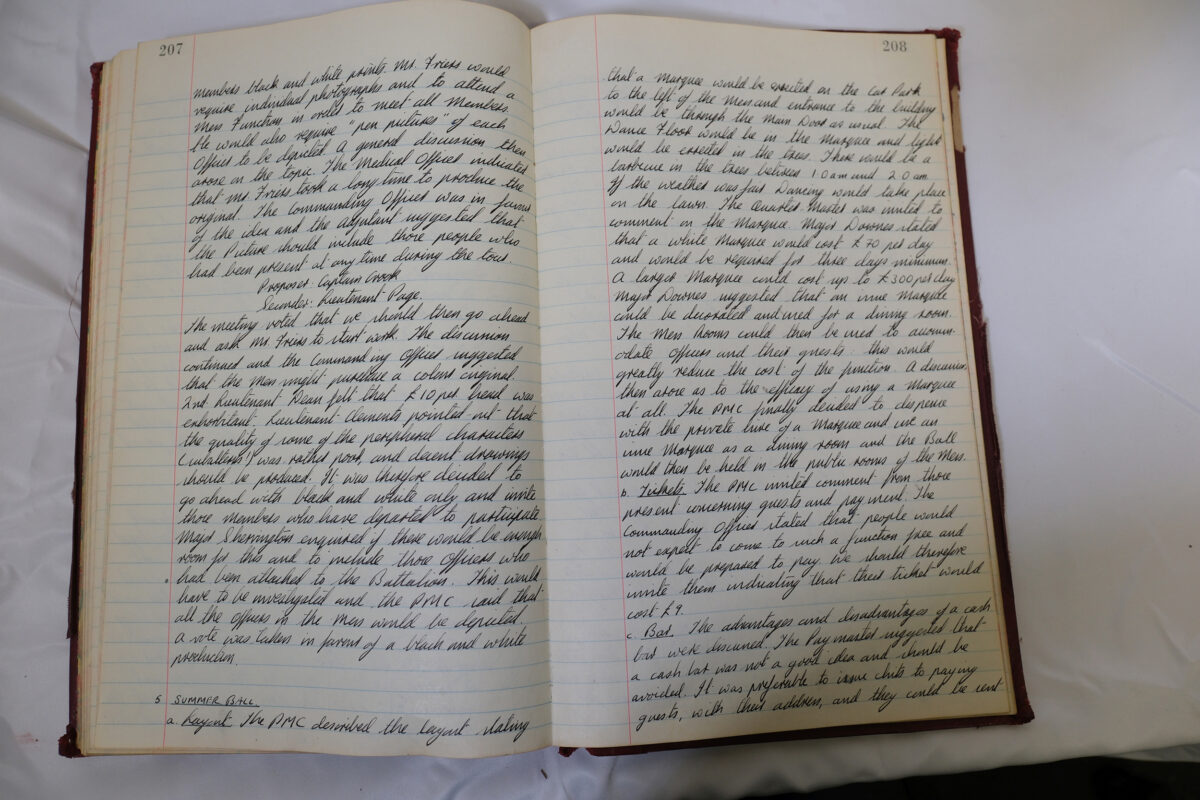 207
members black and white prints. Mr. Friers would
require individual photographs and to attend a
Mess Function in order to meet all members.
He would also require "pen pictures" of each
Officer to be depicted. A general discussion then
arose on the topic. The Medical Officer indicated
that Mr. Friers took a long time to produce the
original. The Commanding Officer was in favour
of the idea and the Adjutant suggested that
the Picture should include those people who
had been present at any time during the tour.
Proposer: Captain Crook
Seconder: Lieutenant Page.
The meeting voted that we should then go ahead
and ask Mr. Friers to start work. The discussion
continued and the Commanding Officer suggested
that the Mess might purchase a colour original.
2nd Lieutenant Dean felt that £10 per head was
exhorbitant. Lieutenant Clements pointed out that
the quality of some of the peripheral characters
was rather poor, and decent drawings
should be produced. It was therefore decided to
go ahead with black and white only and invite
those members who have departed to participate.
Major Sherrington enquired if there would be enough
room for this and to include those Officers who
had been attached to the Battalion. This would
have to be investigated and the PMC said that
all the Officers in the Mess would be depicted.
A vote was taken in favour of a black and white
production.
5 SUMMER BALL
a. Layout The PMC described the layout stating
208
that a Marquee would be erected on the Car Park
to the left of the Mess and entrance to the building
would be through the Main Door as usual. The
Dance Floor would be in the Marquee and light
would be erected in the trees. There would be a
barbecue in the trees between 1.0 am and 2.0 am.
If the weather was fair Dancing would take place
on the lawn. The Quarter Master was invited to
comment on the Marquee. Major Downes stated
that a white Marquee would cost £70 per day
and would be required for three days minimum.
A larger Marquee could cost up to £300 per day
Major Downes suggested that an issue Marquee
could be decorated and used for a dining room.
The Mess Rooms could then be used to accomm-
odate Officers and their guests: this would
greatly reduce the cost of the function. A discussion
then arose as to the efficacy of using a Marquee
at all. The PMC finally decided to dispense
with the private hire of a Marquee and use an
issue Marquee as a dining room and the Ball
would then be held in the public rooms of the Mess.
b. Tickets The PMC invited comment from those
present concerning guests and payment. The
Commanding Officer stated that people would
not expect to come to such a function free and
would be prepared to pay. We should therefore
invite them indicating that their ticket would
cost £9.
c. Bar. The advantages and disadvantages of a cash
bar were discussed. The Paymaster suggested that
a cash bar was not a good idea and should be
avoided. It was preferable to issue chits to paying
guests, with their address, and they could be sent